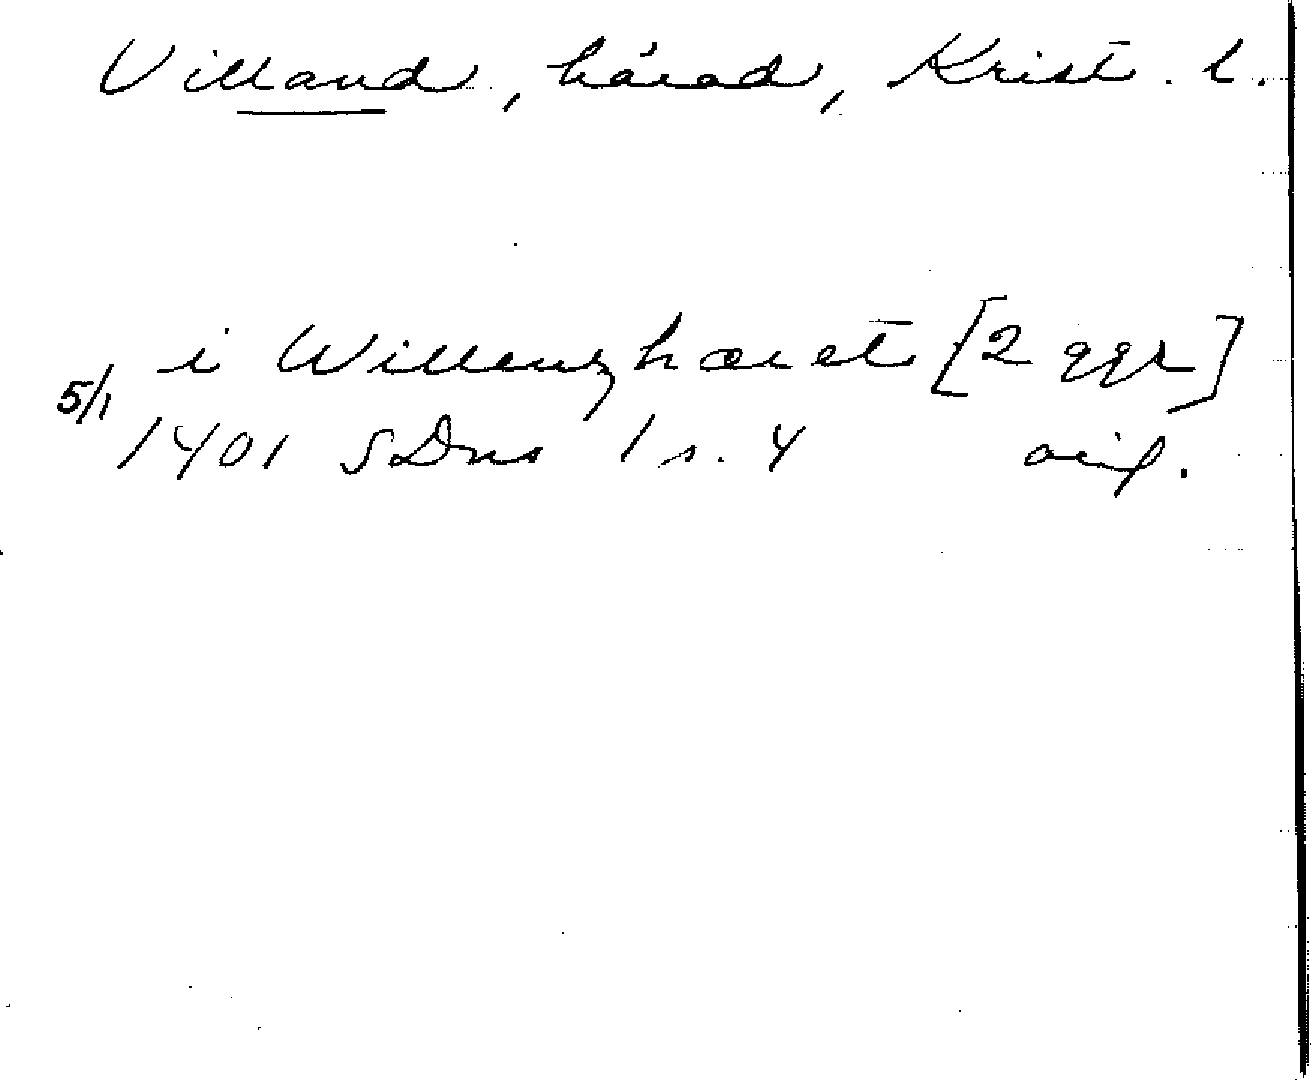 Villand, härad, Krist. l.
i Willenzhæret [2 ggr]
5/1 1401 SDns 1 s. 4 avig.